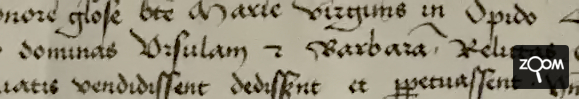 glose bte Marie virginis in Opido
dominas Vrsulam ⁊ Barbara Relictas
vendidissent dedissent et ꝑpetuassent
ZOOM